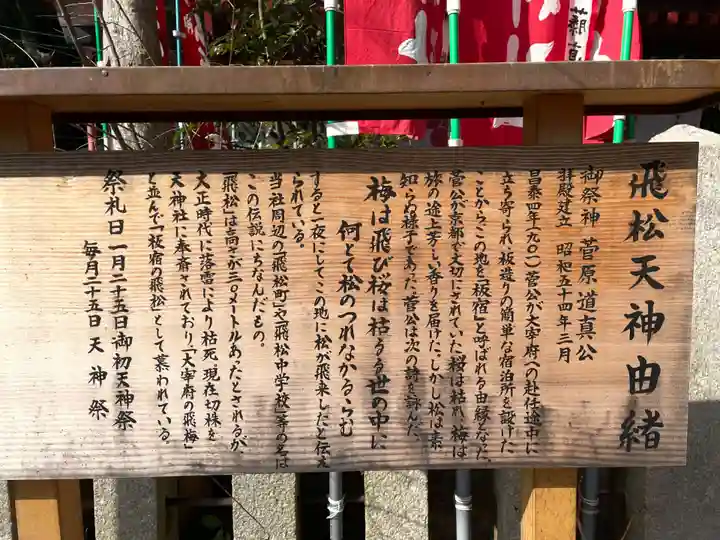 飛松天神由緒
御祭神 菅原道真公
拝殿建立 昭和五十四年三月
昌泰四年(九〇一)菅公が大宰府への赴任途中に
立ち寄られ、板造りの簡単な宿泊所を設けた
ことからこの地を「板宿」と呼ばれる由縁となった。
菅公が京都で大切にされていた桜は枯れ、梅は
旅の途上芳しい香りを届けた。しかし松は素
知らぬ様子であった。菅公は次の詩を詠んだ。
梅は飛び桜は枯るる世の中に
何とて松のつれなかるらむ
すると一夜にしてこの地に松が飛来したと伝え
られている。
当社周辺の「飛松町」や「飛松中学校」等の名は
この伝説にちなんだもの。
「飛松」は高さが三〇メートルあったとされるが、
大正時代に落雷により枯死、現在切株を
天神社に奉斎されており、「大宰府の飛梅」
と並んで「板宿の飛松」として慕われている。
祭礼日 一月二十五日 御初天神祭
毎月二十五日 天神祭